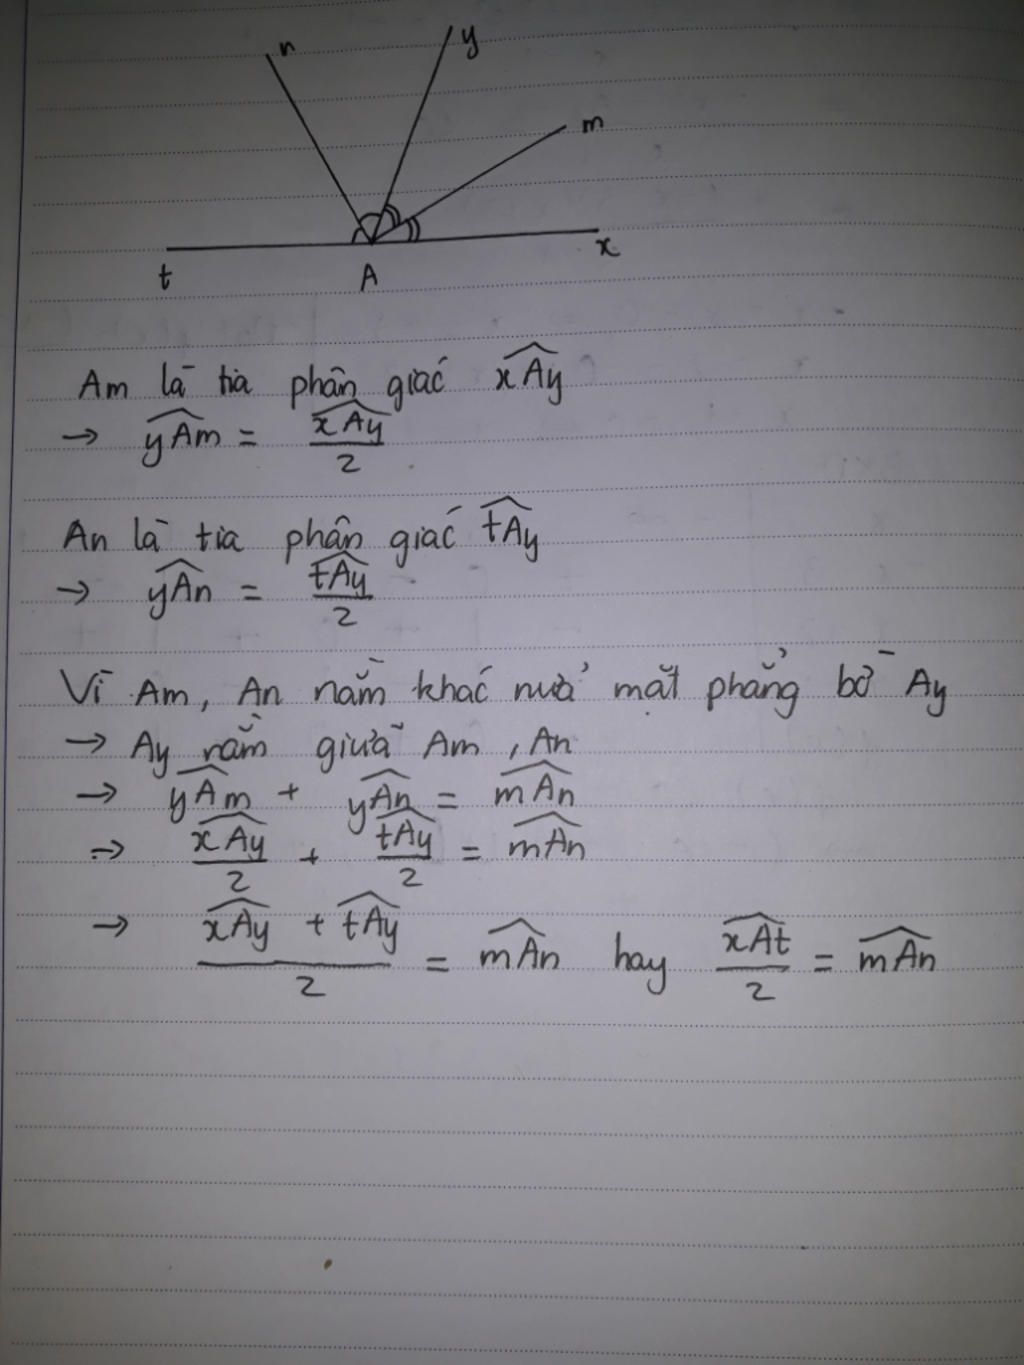 n y m
t A x
Am là tia phân giác $\widehat{xAy}$
→ $\widehat{yAm} = \frac{\widehat{xAy}}{2}$
An là tia phân giác $\widehat{tAy}$
→ $\widehat{yAn} = \frac{\widehat{tAy}}{2}$
Vì Am, An nằm khác nửa mặt phẳng bờ Ay
→ Ay nằm giữa Am, An
→ $\widehat{yAm} + \widehat{yAn} = \widehat{mAn}$
→ $\frac{\widehat{xAy}}{2} + \frac{\widehat{tAy}}{2} = \widehat{mAn}$
→ $\frac{\widehat{xAy} + \widehat{tAy}}{2} = \widehat{mAn}$ hay $\frac{\widehat{xAt}}{2} = \widehat{mAn}$